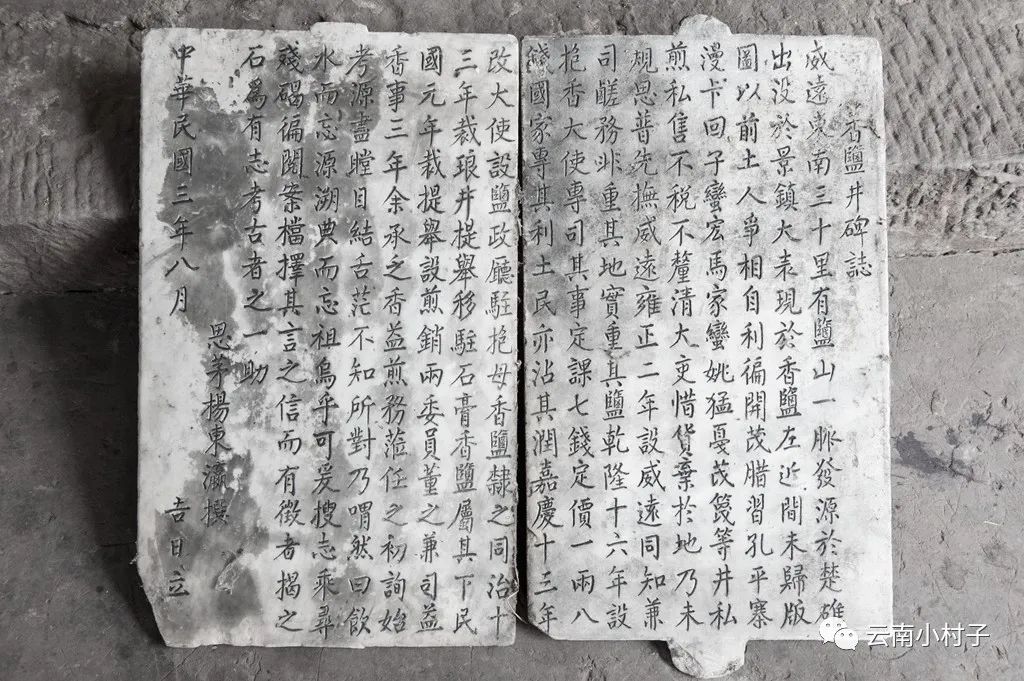 香鹽井碑誌
威遠東南三十里有鹽山一脈發源於楚雄
出没於景鎮大表現於香鹽左近間未歸版
圖以前土人爭相自利徧開茂腊習孔平寨
漫卡回子蠻宏馬家蠻姚猛戞茂篾等井私
煎私售不税不釐清大吏惜貨棄於地乃未
規思普先撫威遠雍正二年設威遠同知兼
司鹾務非重其地實重其鹽乾隆十六年設
抱香大使專司其事定課七錢定價一兩八
錢國家專其利土民亦沾其潤嘉慶十三年
改大使設鹽政廳駐抱母香鹽隸之同治十
三年裁琅井提舉移駐石膏香鹽屬其下民
國元年裁提舉設煎銷兩委員董之兼司益
香事三年余承之香益煎務蒞任之初詢始
考源盡瞠目結舌茫不知所對乃喟然曰飲
水而忘源溯典而忘祖烏乎可爰搜志乘尋
殘碣徧閱案檔擇其言之信而有徵者揭之
石爲有志考古者之一助
思茅楊東瀛撰
中華民國三年八月 吉日立
云南小村子